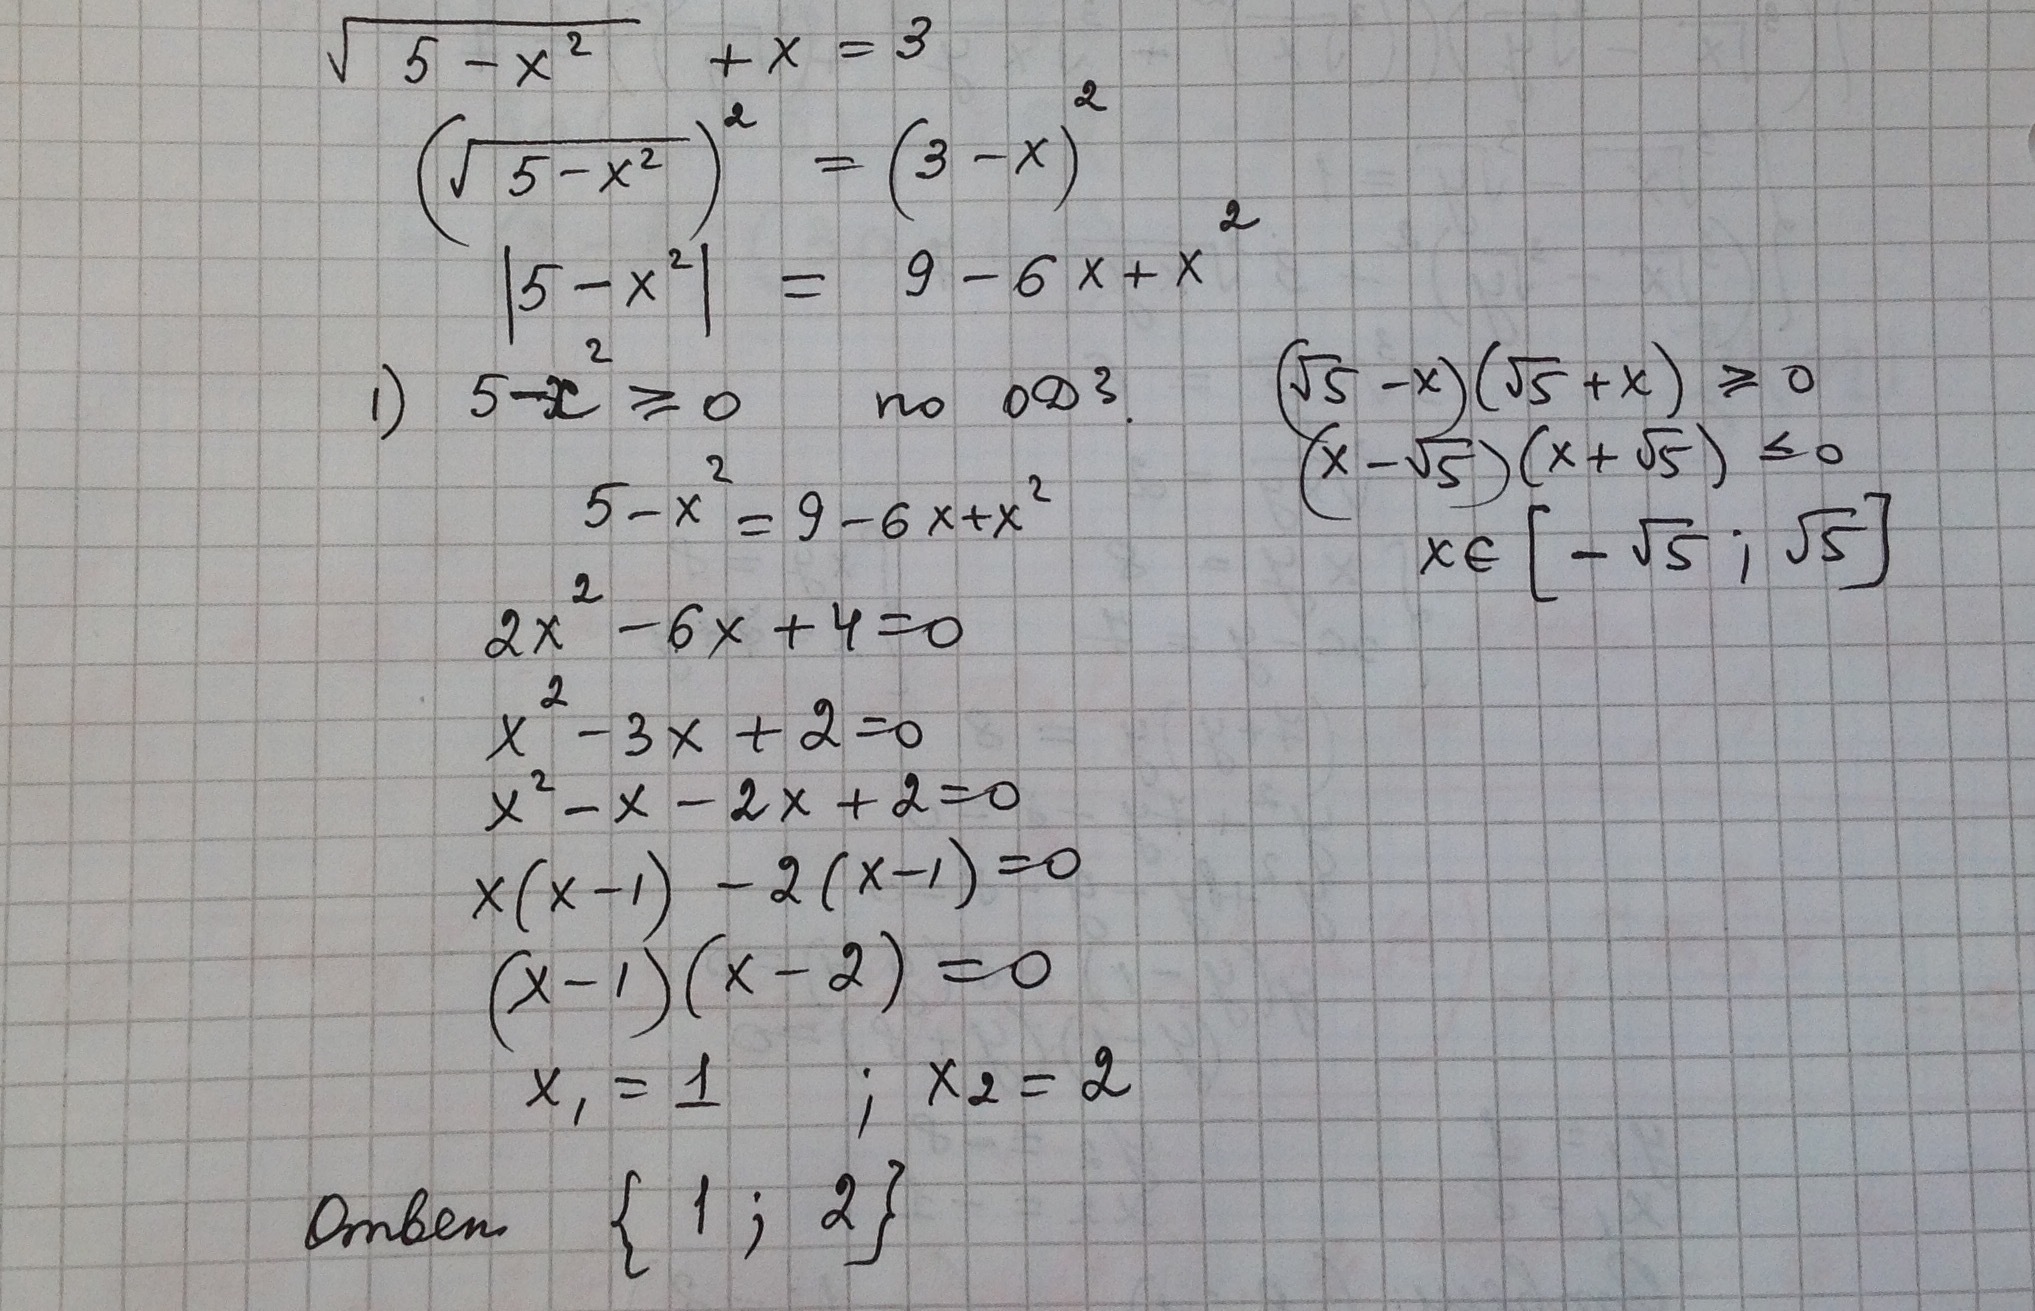 √(5-x²) + x = 3
(√(5-x²))² = (3-x)²
|5-x²| = 9-6x+x²
1) 5-x² ≥ 0 по ОДЗ. (√5-x)(√5+x) ≥ 0
(x-√5)(x+√5) ≤ 0
5-x² = 9-6x+x²
x∈[-√5; √5]
2x²-6x+4=0
x²-3x+2=0
x²-x-2x+2=0
x(x-1) -2(x-1)=0
(x-1)(x-2)=0
x₁=1 ; x₂=2
Ответ {1; 2}